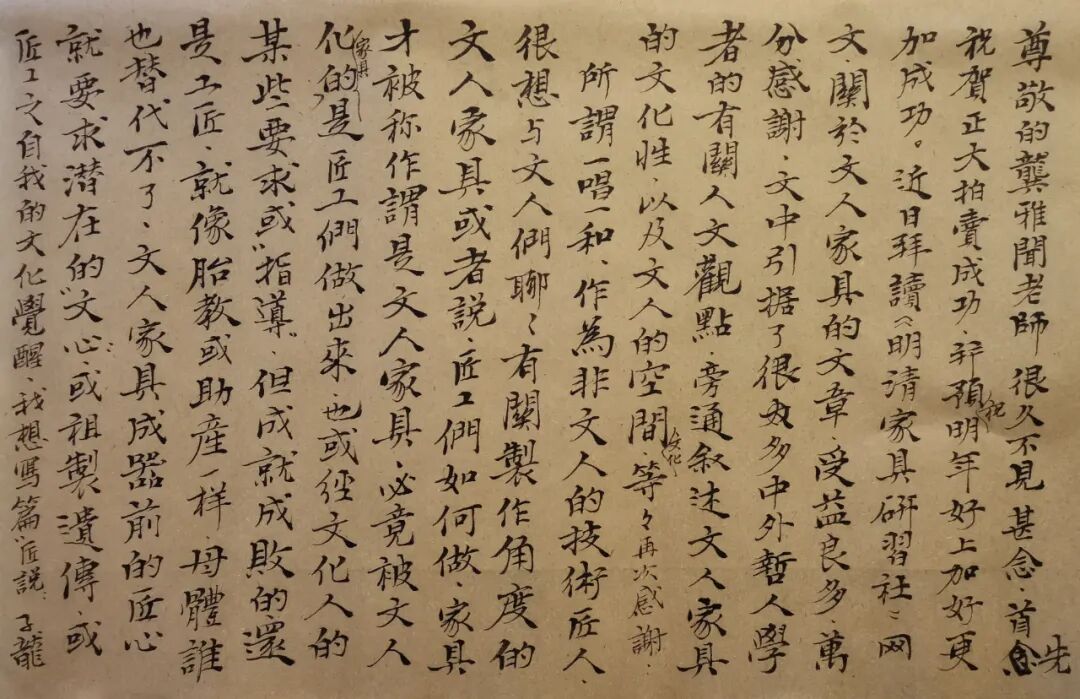 尊敬的龔雅聞老師很久不見甚念、首先
祝賀正大拍賣成功、並預祝明年好上加好更
加成功。近日拜讀《明清家具研習社》网
文、關於文人家具的文章、受益良多、萬
分感謝、文中引据了很多中外哲人學
者的有關人文觀點、旁通叙述文人家具
的文化性、以及文人的文化空間、等々再次感謝、
所謂一唱一和、作為非文人的技術匠人、
很想与文人們聊〻有關製作角度的
文人家具或者說、匠工們如何做、家具
才被称作謂是文人家具、必竟被文人
化的家具是匠工們做出來、也或經文化人的
某些要求或“指導”、但成就成敗的還
是工匠、就像胎教或助產一样、母體誰
也替代不了、文人家具成器前的匠心
就要求潛在的“文心”或祖製遺傳、或
匠工之自我的文化覺醒、我想寫篇“匠說” 子龍